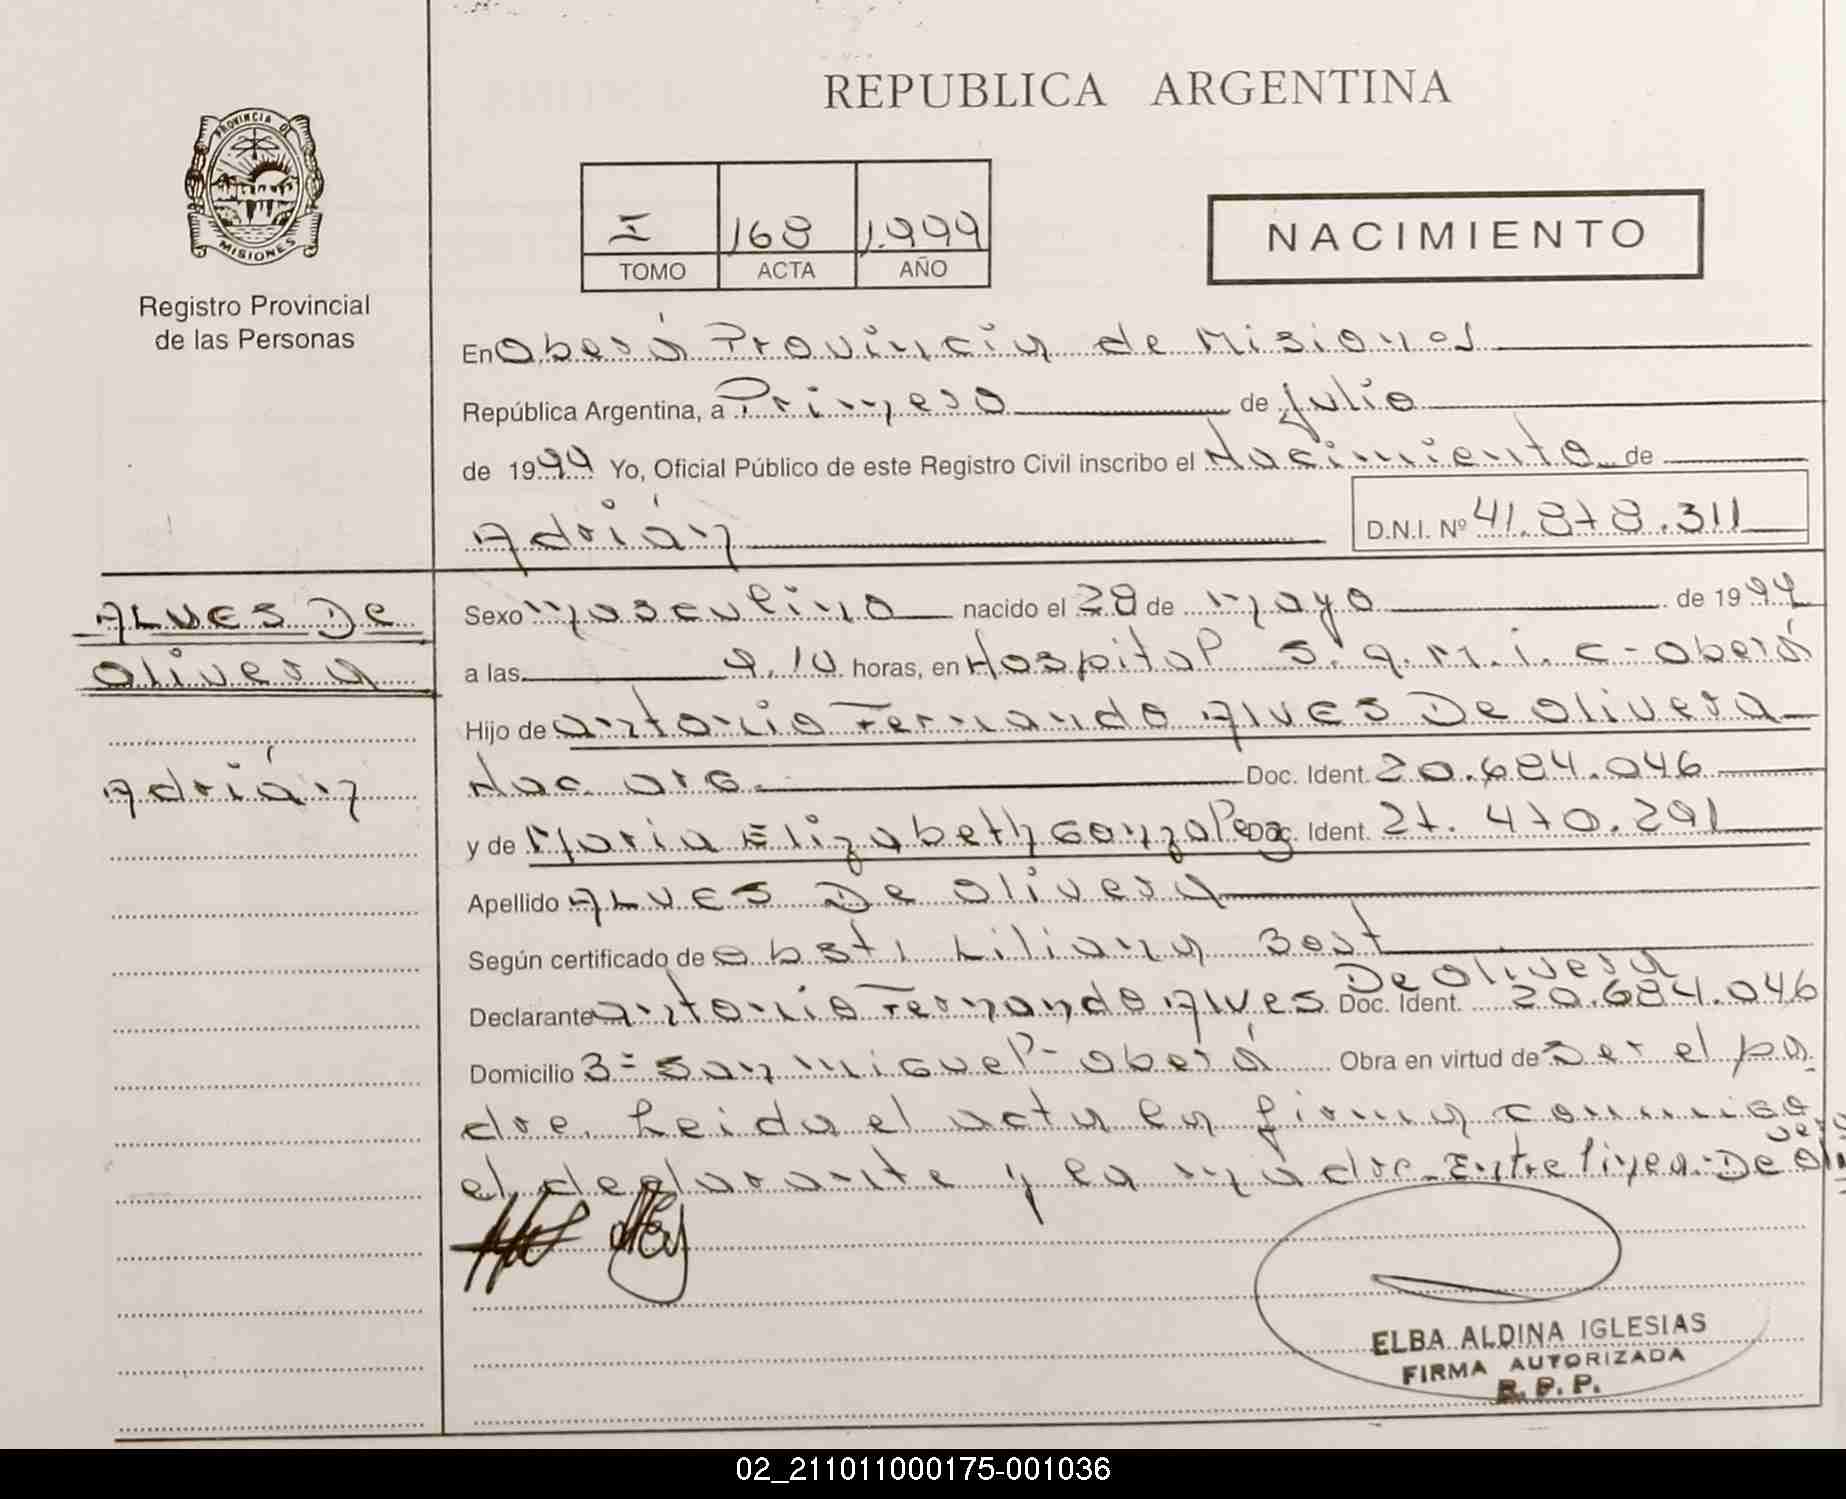 REPUBLICA ARGENTINA
PROVINCIA DE
MISIONES
Registro Provincial
de las Personas
I 168 1.999
TOMO ACTA AÑO
NACIMIENTO
En Oberá Provincia de Misiones
República Argentina, a Primero de Julio
de 1999 Yo, Oficial Público de este Registro Civil inscribo el Nacimiento de
Adrián D.N.I. Nº 41.878.311
ALVES De
Olivera
Adrián
Sexo masculino nacido el 28 de mayo de 1999
a las 9.10 horas, en Hospital S.a.m.i.c - Oberá
Hijo de antonio Fernando Alves De Olivera
Nac. arg. Doc. Ident. 20.684.046
y de Maria Elizabeth Gonzalez Doc. Ident. 27.470.291
Apellido ALVES De Olivera
Según certificado de obst. Liliana Bost
De Olivera
Declarante antonio Fernando Alves Doc. Ident. 20.684.046
Domicilio Bº San Miguel - Oberá Obra en virtud de Ser el pa-
dre. Leida el acta la firma conmigo
el declarante y la madre. Entre linea: De Olivera
ELBA ALDINA IGLESIAS
FIRMA AUTORIZADA
R. P. P.
02_211011000175-001036